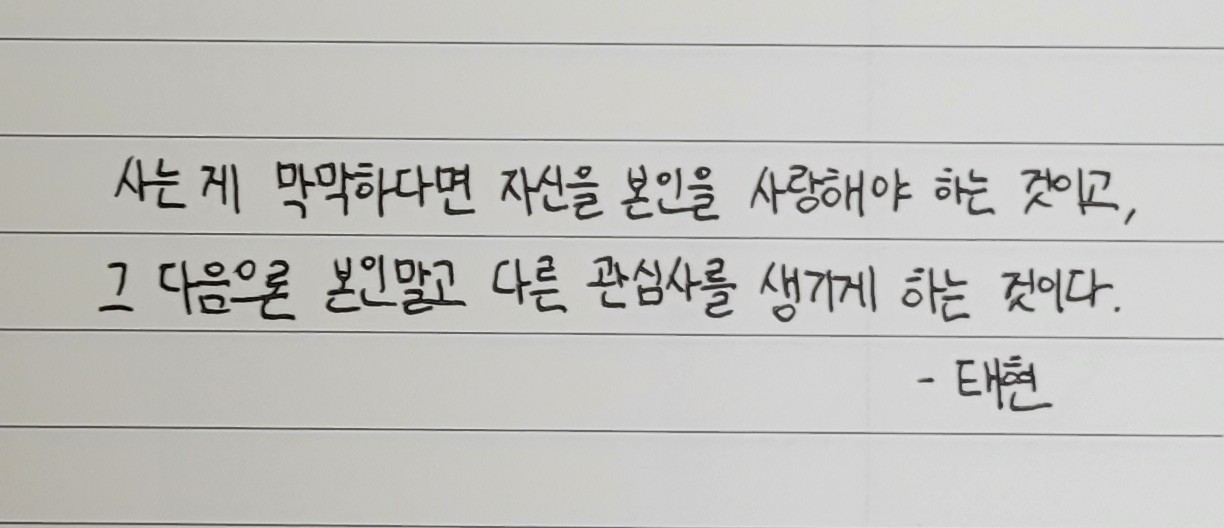 사는 게 막막하다면 자신을 본인을 사랑해야 하는 것이고,
그 다음으론 본인말고 다른 관심사를 생기게 하는 것이다.
- 태현